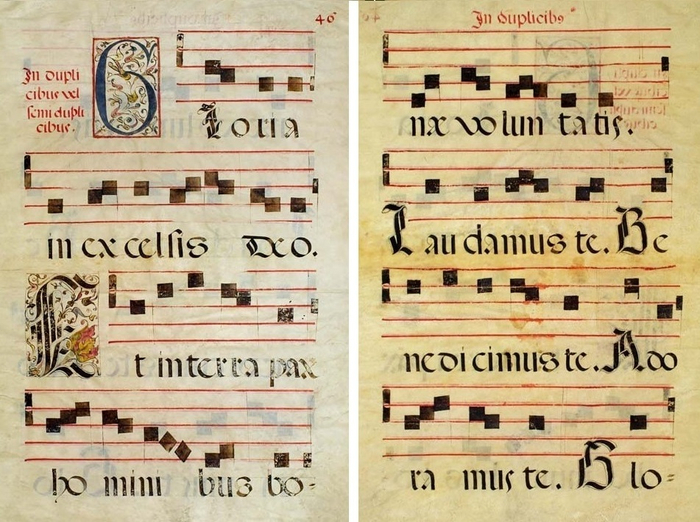 46
In dupli
cibus vel
semidupli
cibus.
Gloria
in excelsis Deo.
Et in terra pax
ho mini bus bo=
In duplicibs
næ volun ta tis.
Lau damus te. Be
ne di cimus te. Ado
ra mus te. Glo=